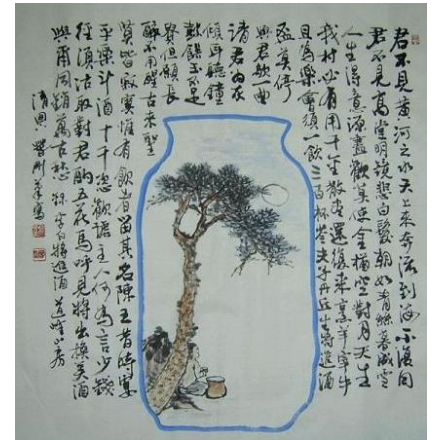 君不見黃河之水天上來奔流到海不復回
君不見高堂明鏡悲白髮朝如青絲暮成雪
人生得意須盡歡莫使金樽空對月天生
我材必有用千金散盡還復來烹羊宰牛
且為樂會須一飲三百杯岑夫子丹丘生將進酒
盃莫停
與君歌一曲
請君為我
傾耳聽鐘
鼓饌玉不足
貴但願長
醉不用醒古來聖
賢皆寂寞惟有飲者留其名陳王昔時宴
平樂斗酒十千恣歡謔主人何為言少錢
徑須沽取對君酌五花馬呼兒將出換美酒
與爾同銷萬古愁 李白將進酒 山房